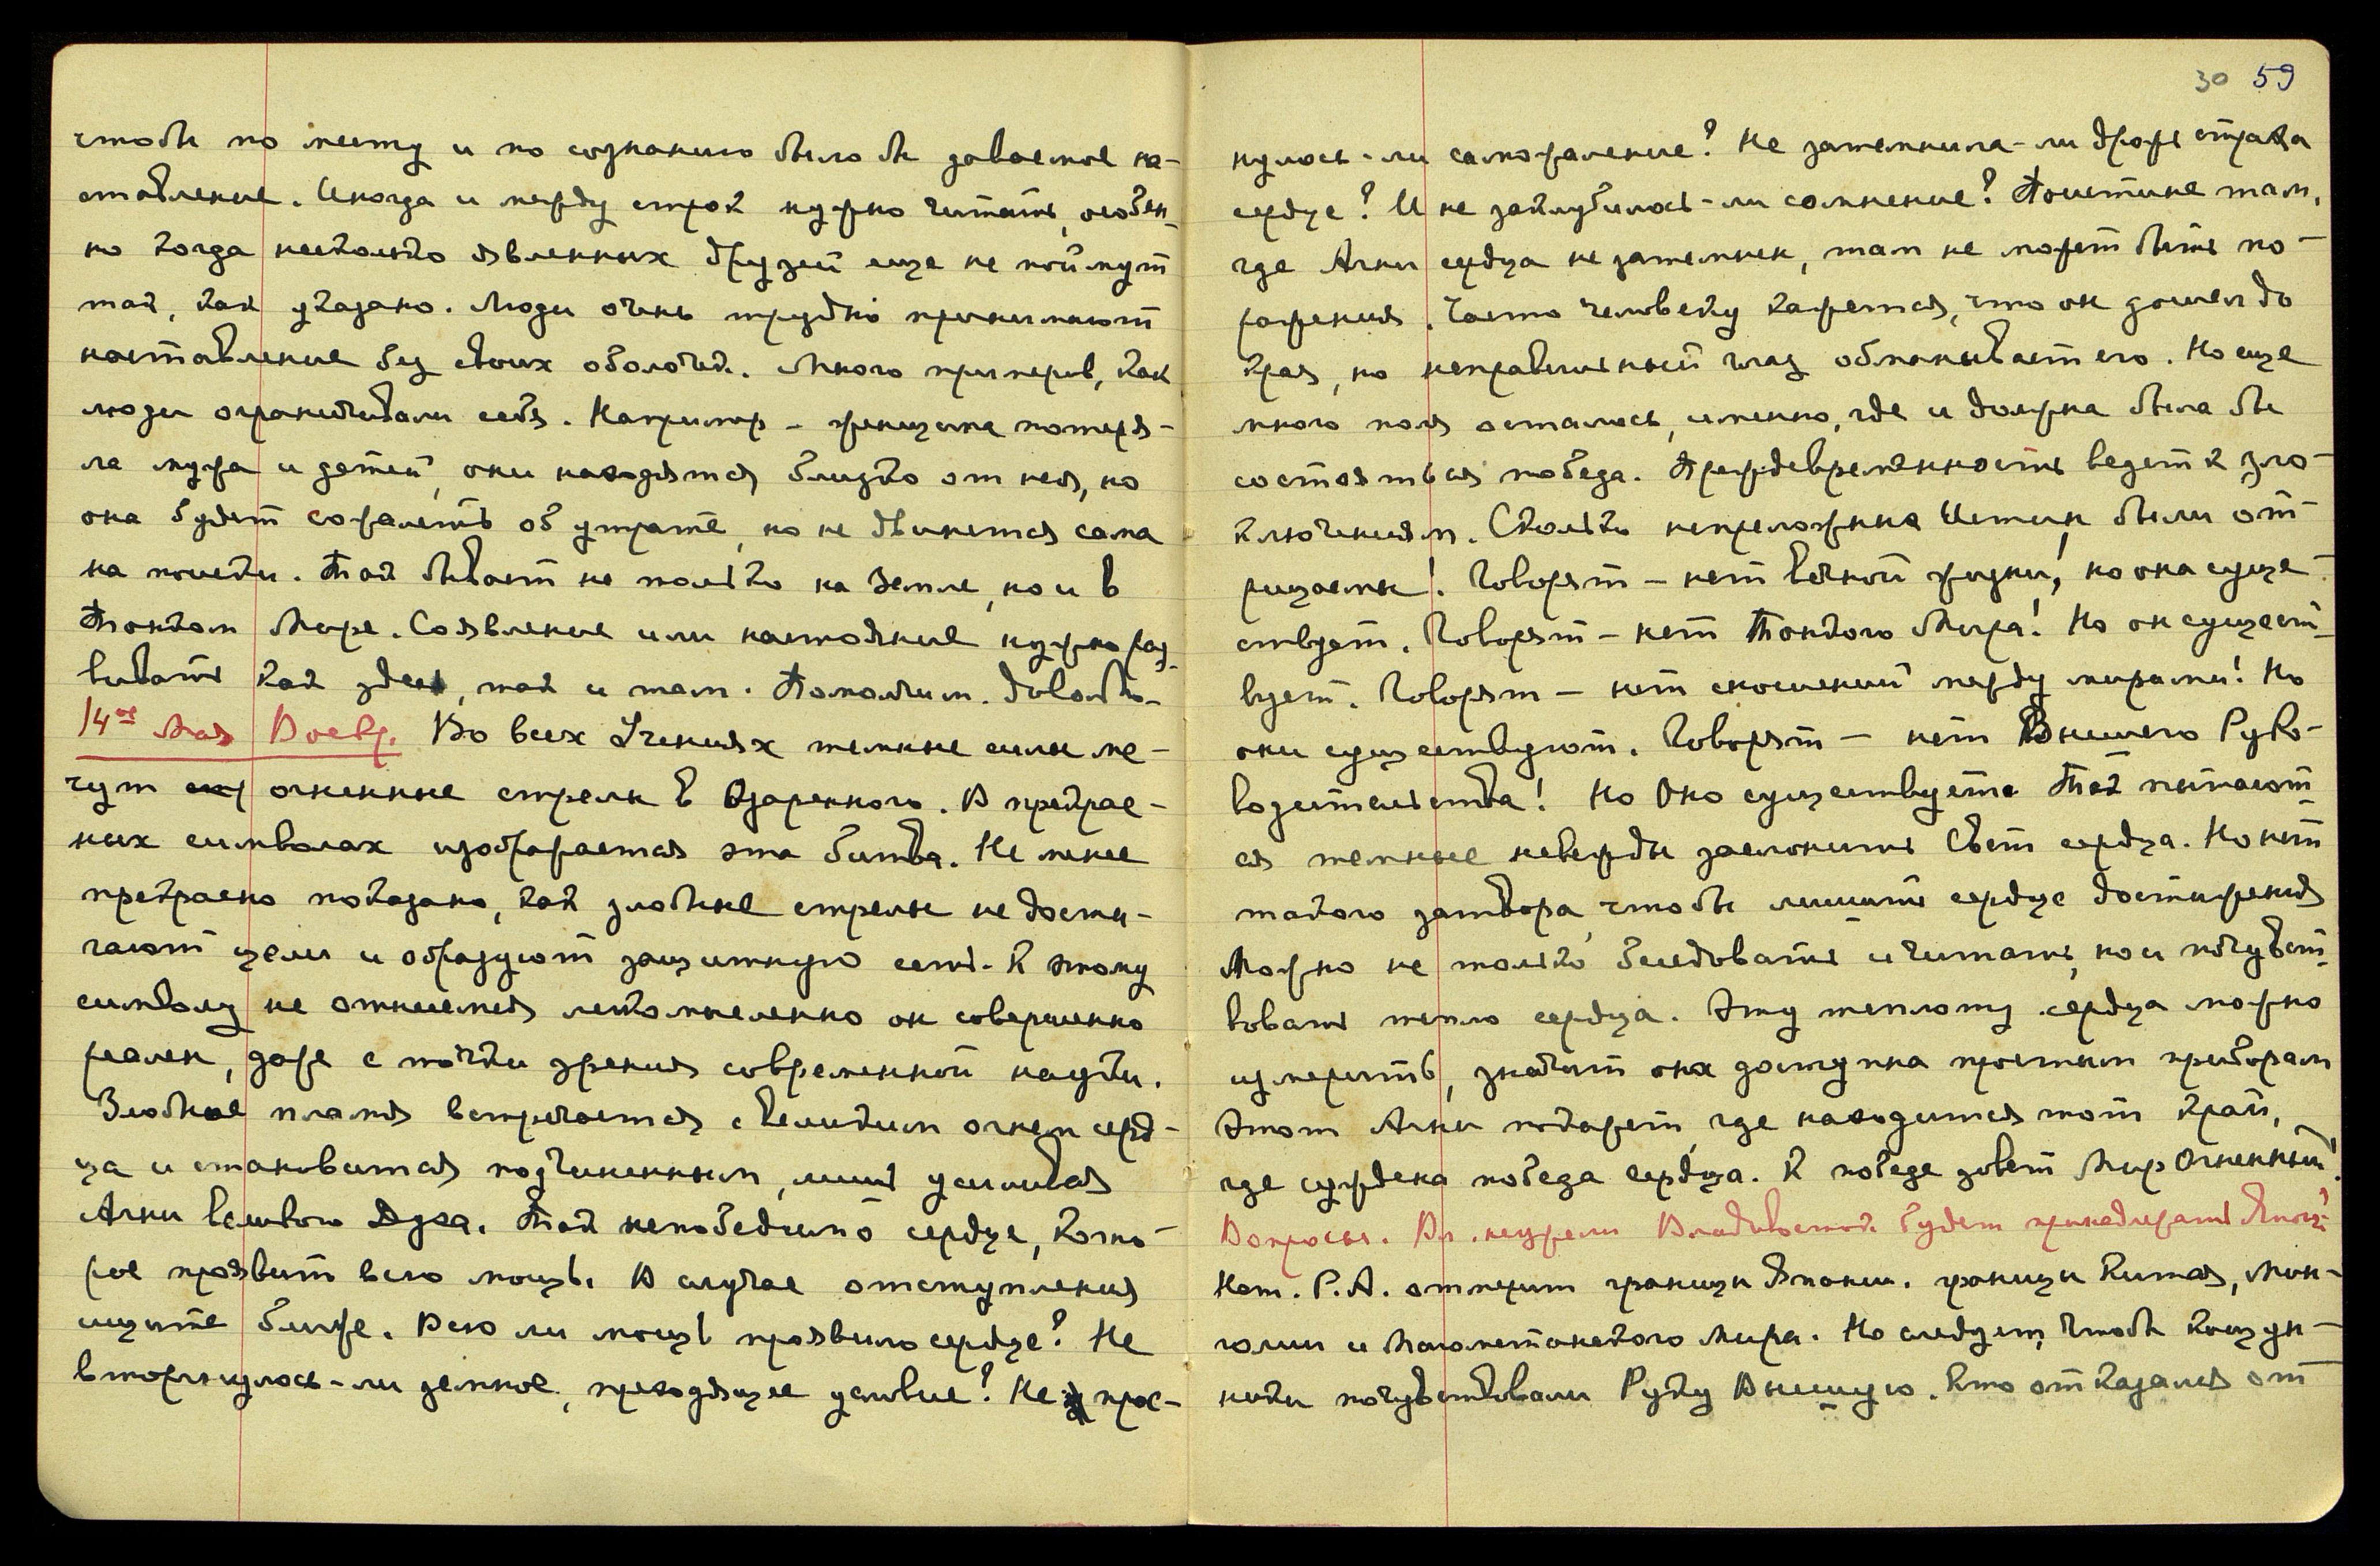 чтобы по месту и по сознанию было бы даваемое на-
ставление. Иногда и между строк нужно читать, особен-
но когда несколько явленных друзей еще не поймут
так, как указано. Люди очень трудно принимают
наставление без своих оболочек. Много примеров, как
люди ограничивали себя. Например - женщина потеря-
ла мужа и детей, они находятся близко от нея, но
она будет сожалеть об утрате, но не двинется сама
на поиски. Так бывает не только на Земле, но и в
Тонком Мире. Соявление или настояние нужно раз-
вивать как здесь, так и там. Помолчим. Довольно.
14ое Мая Воскр. Во всех Учениях темные силы ме-
чут огненные стрелы в Озаренного. В прекрас-
ных символах изображается эта битва. Не менее
прекрасно показано, как злобные стрелы не дости-
гают цели и образуют защитную сеть. К этому
символу не отнесемся легкомысленно он совершенно
реален, даже с точки зрения современной науки.
Злобное пламя встречается с великим огнем серд-
ца и становится подчиненным, лишь усиливая
Агни великого Духа. Так непобедимо сердце, кото-
рое проявит всю мощь. В случае отступления
ищите ближе. Всю ли мощь проявило сердце? Не
вторгнулось-ли земное, преходящее условие? Не прос-
30 59
нулось-ли саможаление? Не затемнила-ли дрожь страха
сердце? И не заклубилось-ли сомнение? Поистине там,
где Агни сердца не затемнен, там не может быть по-
ражения. Часто человеку кажется, что он дошел до
края, но неправильный глаз обманывает его. Но еще
много поля осталось, именно, где и должна была бы
состояться победа. Преждевременность ведет к зло-
ключениям. Сколько непреложных Истин были от-
рицаемы! Говорят - нет вечной жизни! но она суще-
ствует. Говорят - нет Тонкого Мира! Но он сущест-
вует. Говорят - нет сношений между мирами! Но
они существуют. Говорят - нет Высшего Руко-
водительства! Но Оно существует. Так пытают-
ся темные невежды заслонить Свет сердца. Но нет
такого затвора, чтобы лишить сердце достижения
Можно не только беседовать и читать, но и почувст-
вовать тепло сердца. Эту теплоту сердца можно
измерить, значит она доступна простым приборам
Этот Агни покажет, где находится тот край,
где суждена победа сердца. К победе зовет Мир Огненный!
Вопросы. Вл. неужели Владивосток будет принадлежать Японии?
Нет. Р.А. отмерит границы Японии. границы Китая, Мон-
голии и Магометанского Мира. Но следует, чтобы кощун-
ники почувствовали Руку Высшую. Кто отказался от